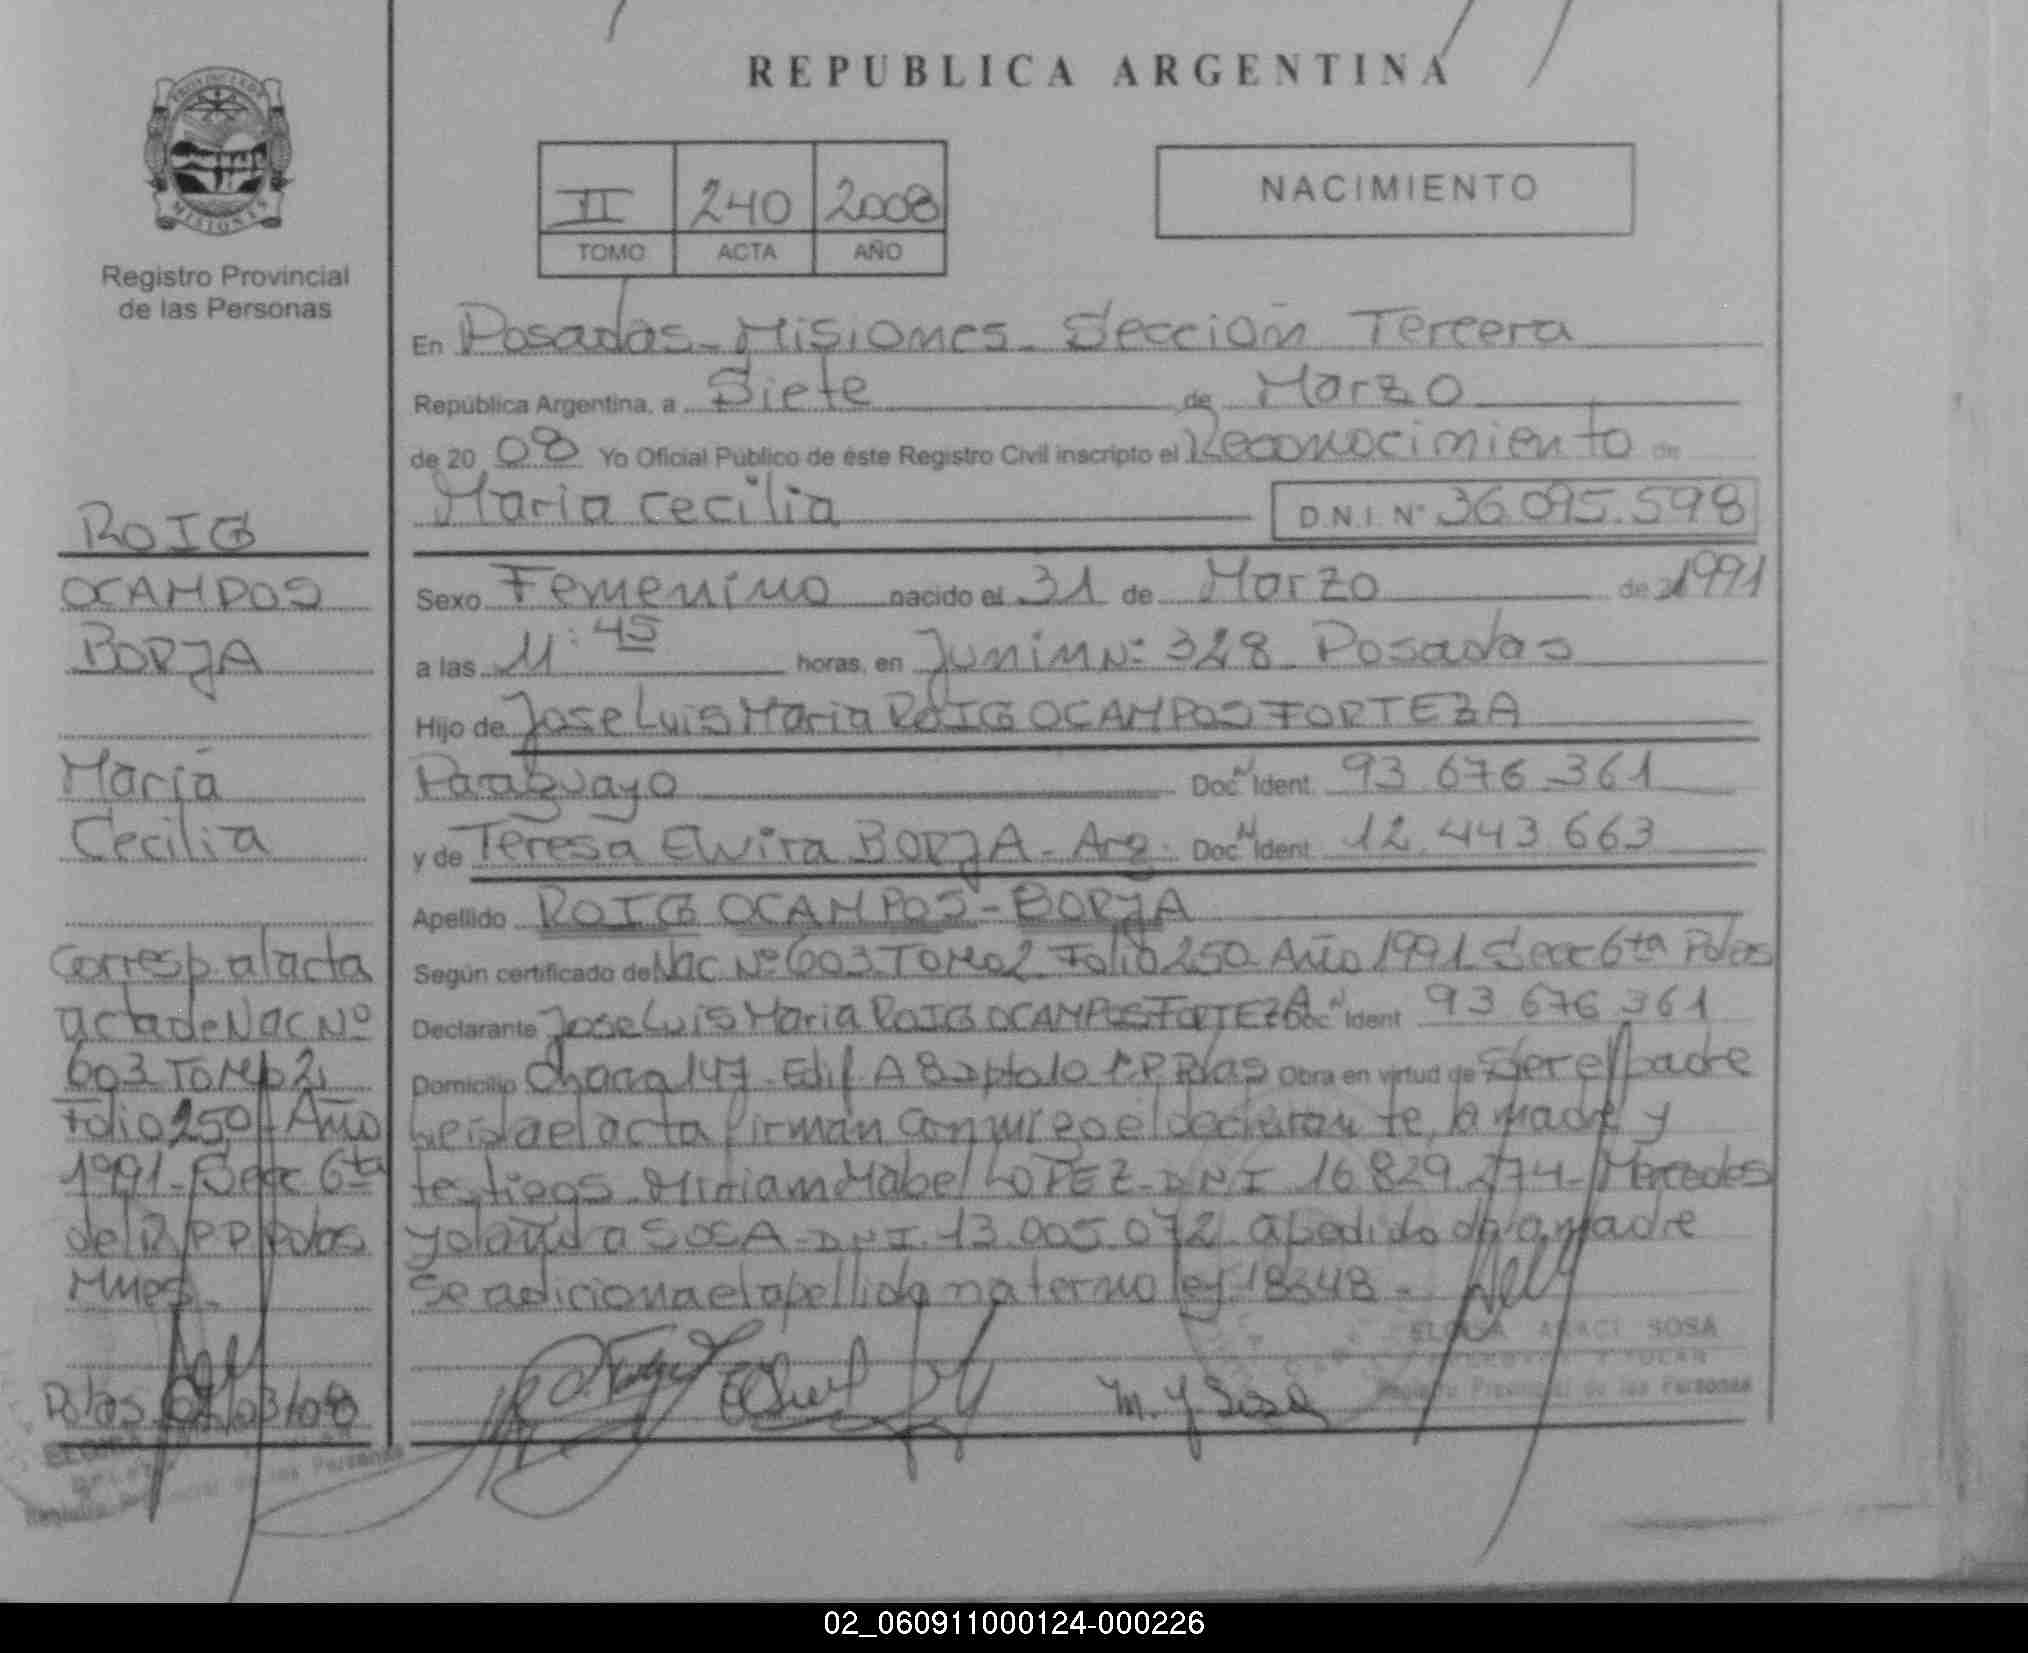 REPUBLICA ARGENTINA
PROVINCIA DE
MISIONES
Registro Provincial
de las Personas
II 240 2008
TOMO ACTA AÑO
NACIMIENTO
En Posadas - Misiones - Sección Tercera
República Argentina, a Siete de Marzo
de 20 08 Yo Oficial Público de éste Registro Civil inscripto el Reconocimiento de
Maria Cecilia D.N.I. Nº 36.095.598
Sexo Femenino nacido el 31 de Marzo de 1991
a las 11:45 horas, en Junin Nº 328 Posadas
Hijo de Jose Luis Maria ROIG OCAMPOS FORTEZA
Paraguayo Doc N Ident. 93.676.361
y de Teresa Elvira BORJA - Arg. Doc N Ident. 12.443.663
Apellido ROIG OCAMPOS - BORJA
Según certificado de Nac Nº 603 Tomo 2 Folio 250 Año 1991 Secc 6ta Pdas
Declarante Jose Luis Maria ROIG OCAMPOS FORTEZA Doc N Ident 93 676 361
Domicilio Chacra 147 - Edif. A 8 Dpto 10 Pdas Obra en virtud de Ser el padre
Leida el acta firman conmigo el declarante, la madre y
testigos Miriam Mabel LOPEZ - DNI 16.829.274 - Mercedes
Yolanda SOSA - DNI. 13.005.072 a pedido de la madre
se adiciona el apellido materno ley 18248 -
ELOISA ARACI SOSA
Registro Provincial de las Personas
M. Y Sosa
ROIG
OCAMPOS
BORJA
María
Cecilia
Corresp al acta
acta de Nac Nº
603 Tomo 2
Folio 250 - Año
1991 - Secc 6ta
del R.P.P. Pdas
Mnes.
Pdas 07/03/08
Registro Provincial de las Personas
02_060911000124-000226